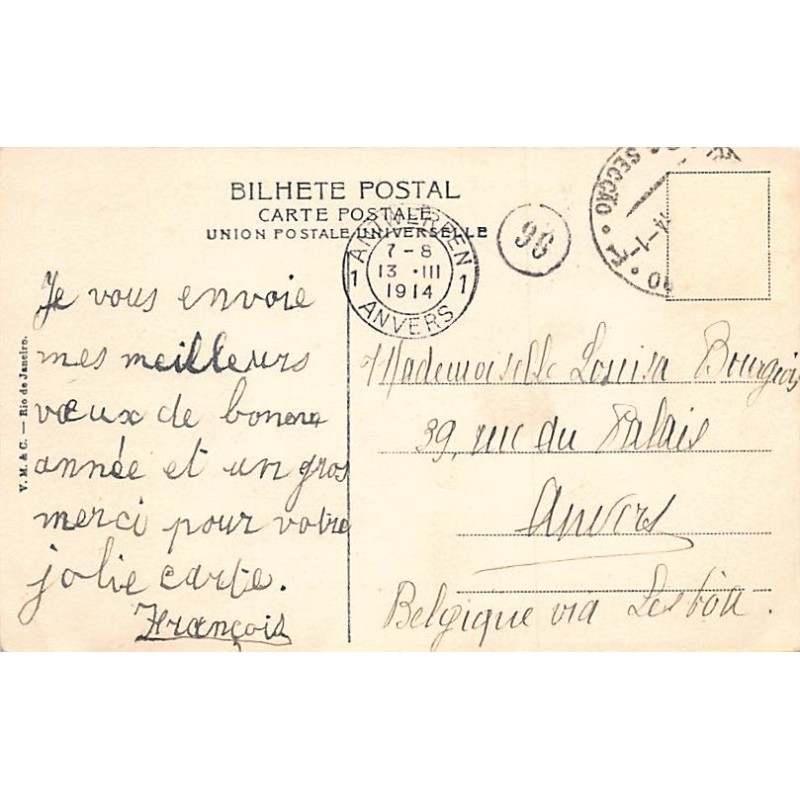 BILHETE POSTAL
CARTE POSTALE
UNION POSTALE UNIVERSELLE
ANTWERPEN
7-8
13 · III
1914
1 1
ANVERS
98
SECÇÃO
14-1-
Je vous envoie
mes meilleurs
vœux de bonne
année et un gros
merci pour votre
jolie carte.
François
Mademoiselle Louisa Bourgeois
39, rue du Palais
Anvers
Belgique via
V. M. & C. — Rio de Janeiro.